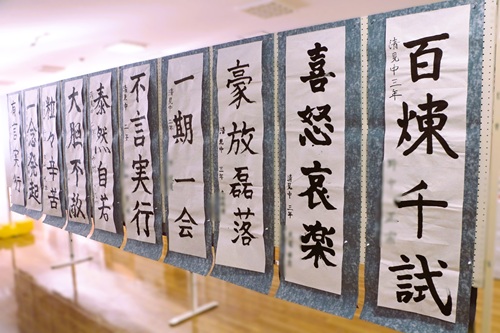 百煉千試
清見中三年
喜怒哀楽
清見中三年
豪放磊落
清見中三年
一期一会
不言実行
泰然自若
大胆不敵
粒々辛苦
一念発起
言実行